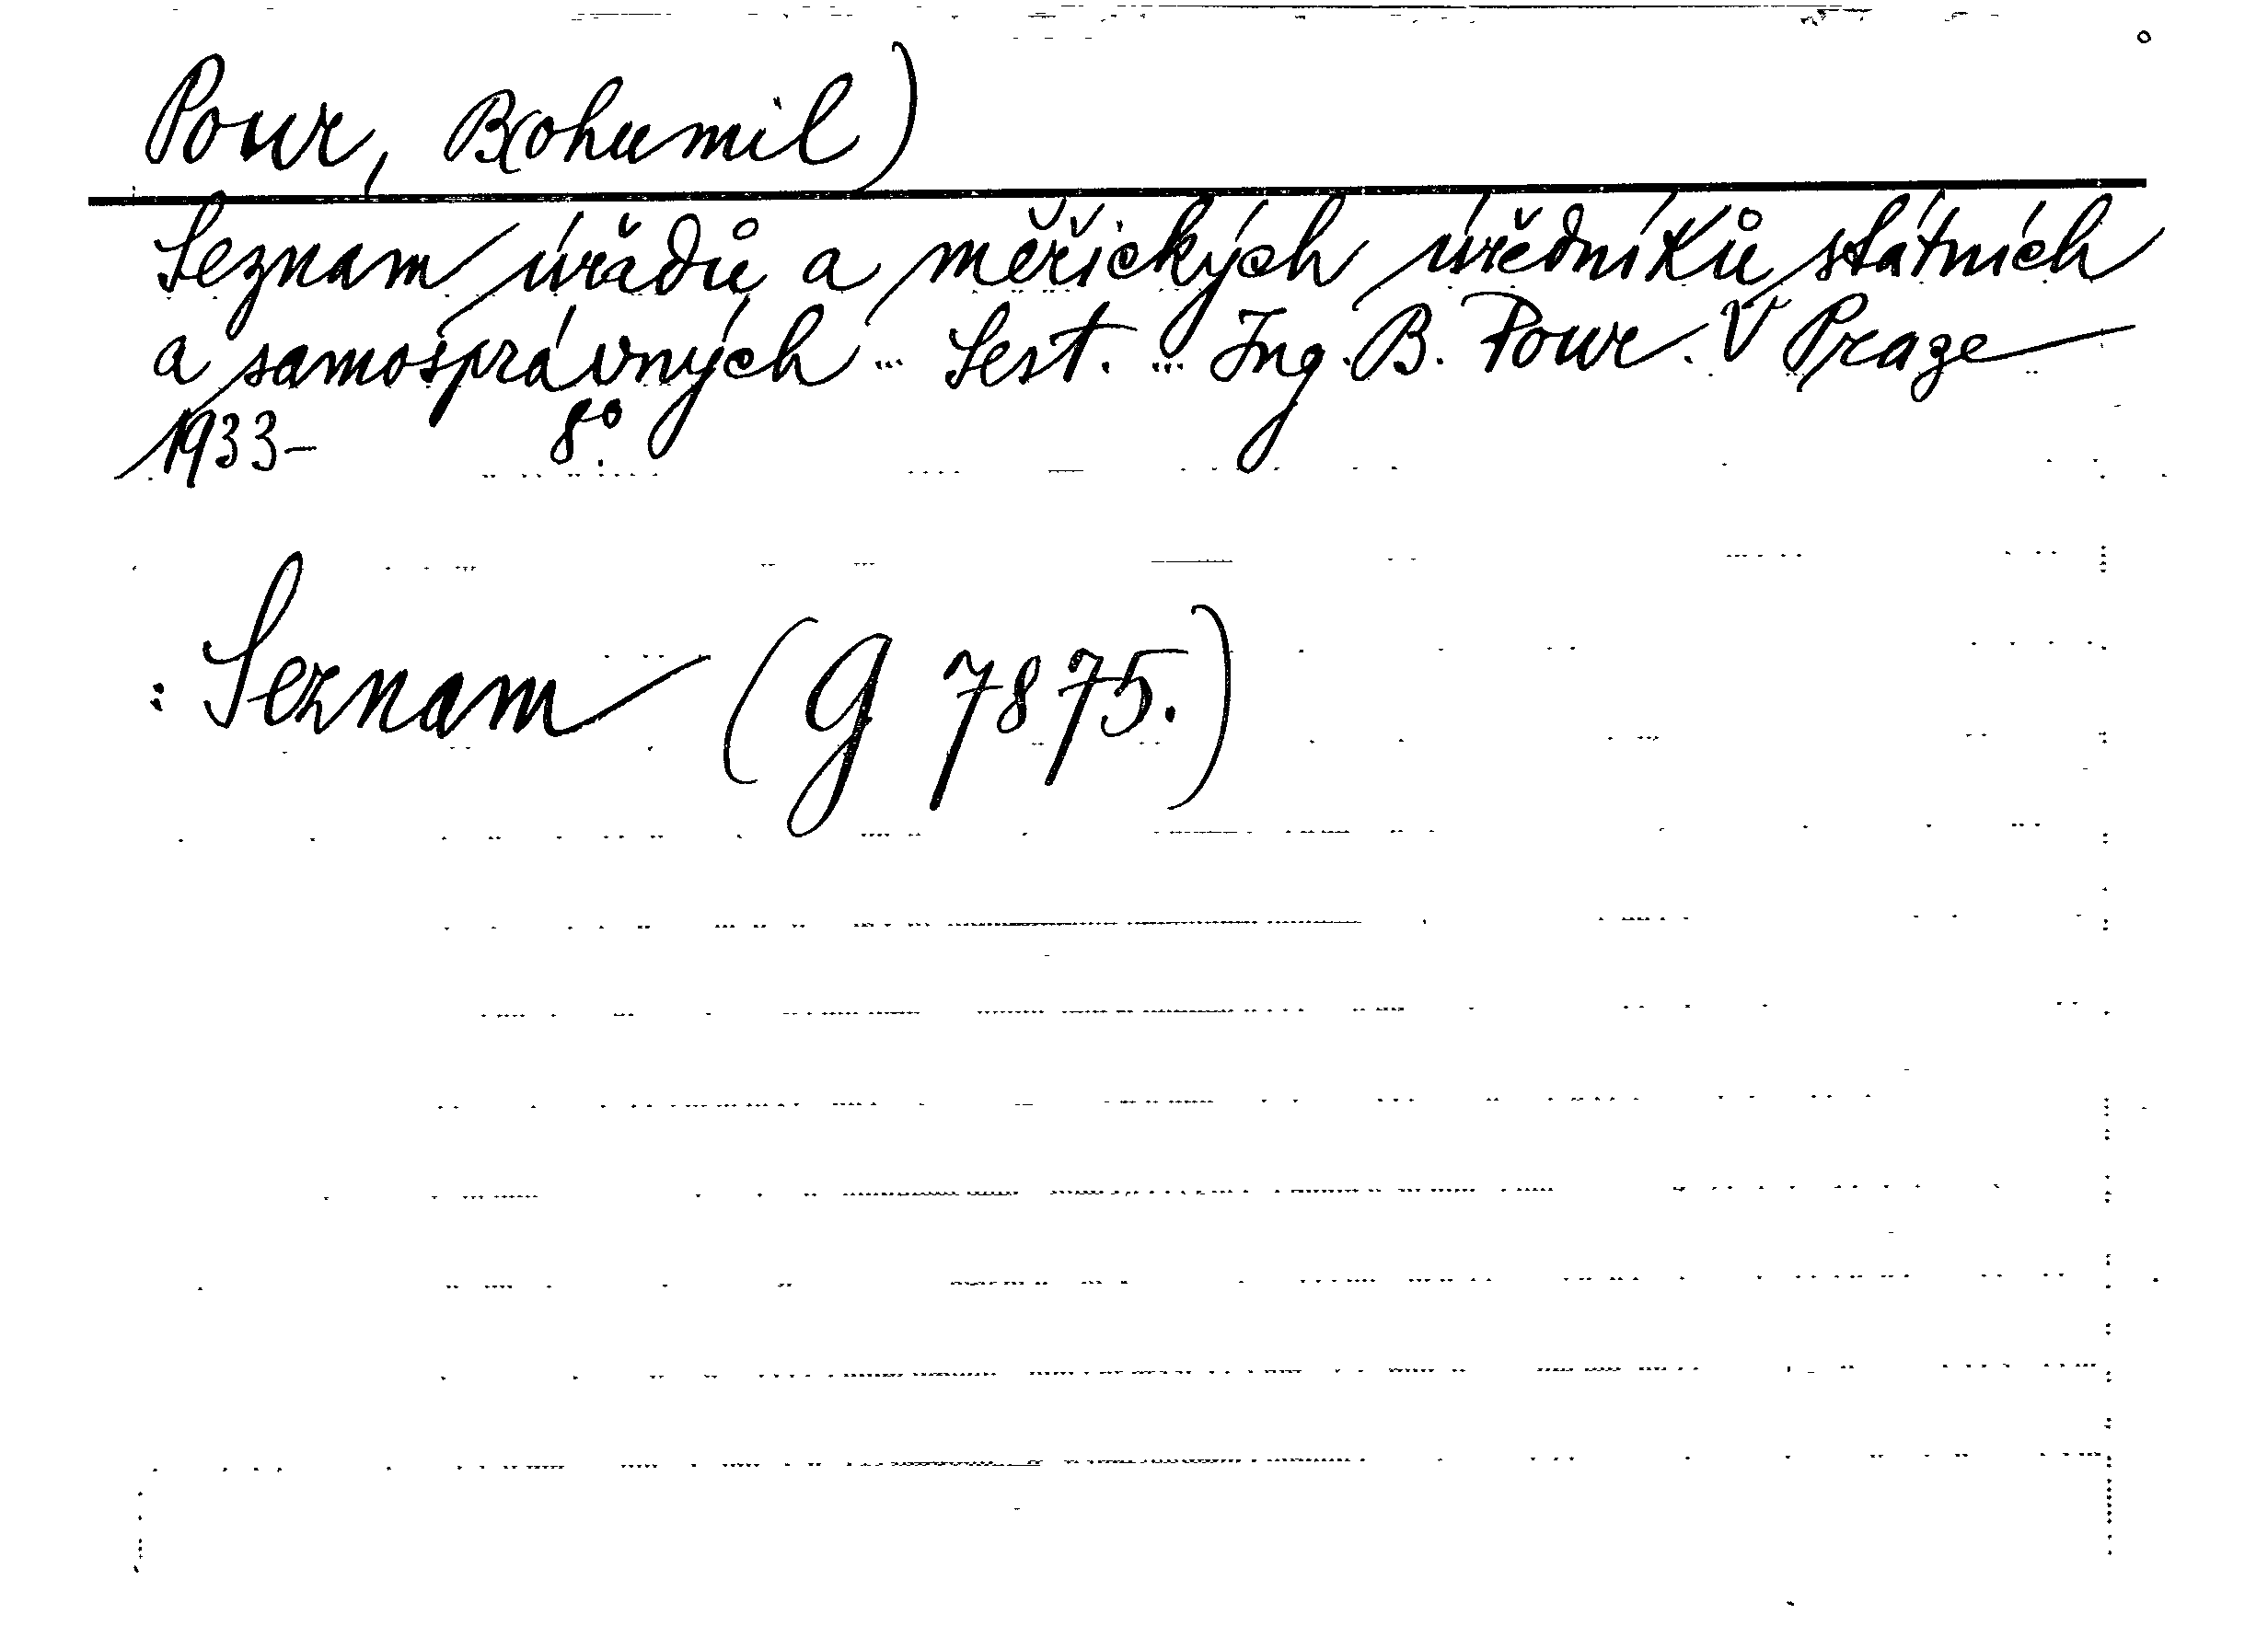 Pour, B(ohumil)
Seznam úřadů a měřických úředníků státních
a samosprávných ... Sest. ... Ing. B. Pour. V Praze
1933- 8°.
: Seznam (G 7875.)